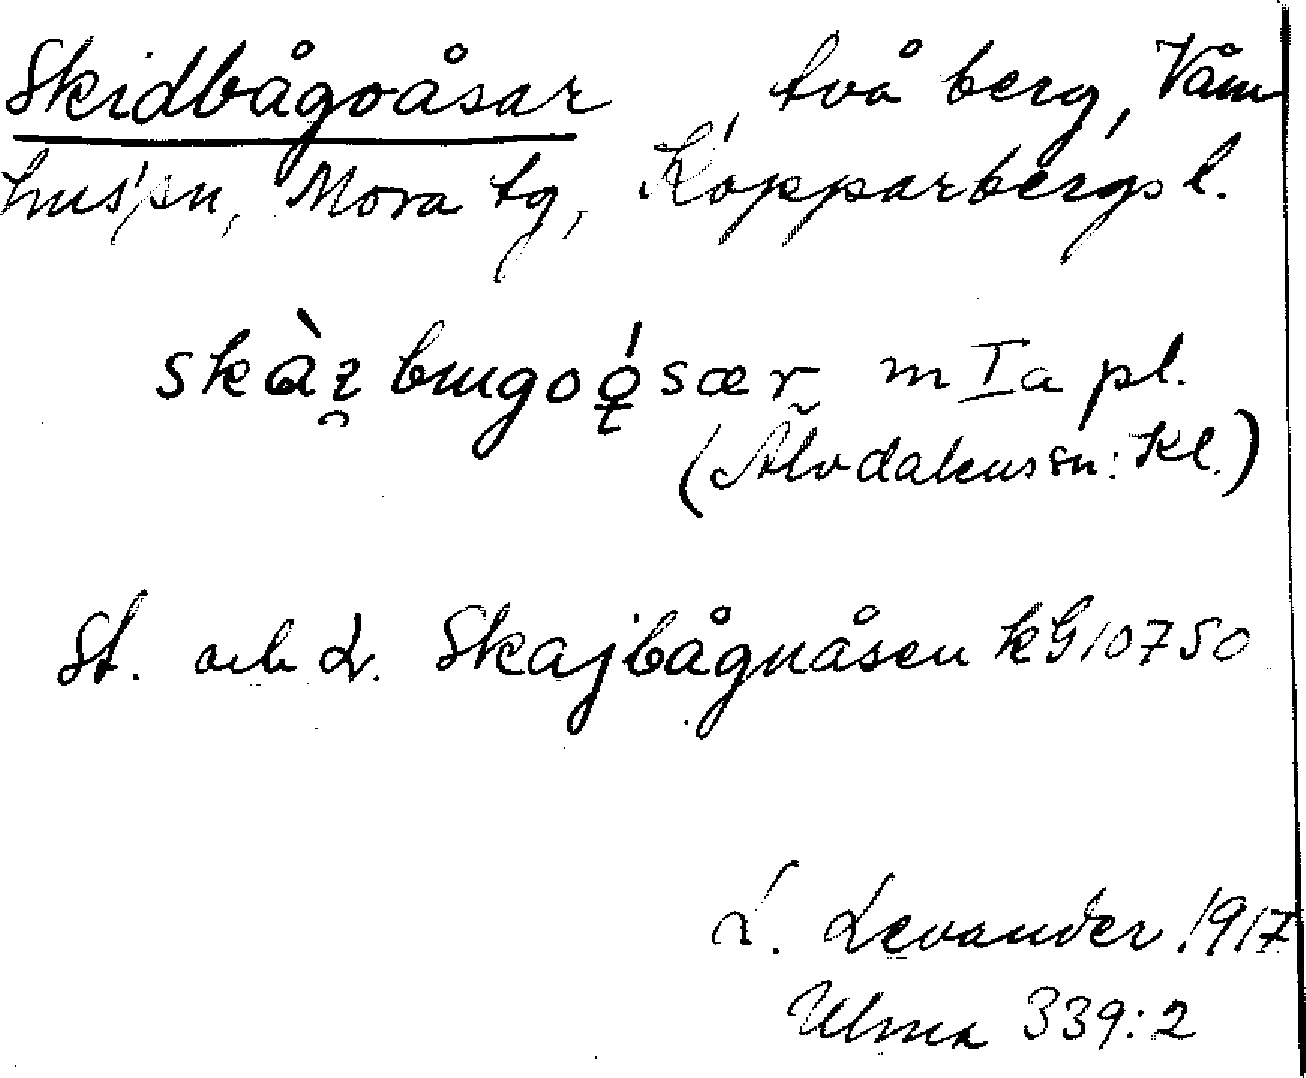 Skidbågoåsar, två berg, Våm
hus sn, Mora tg, Kopparbergs l.
skàʐ bugoǫ́sær m Ia pl.
(Älvdalens sn: Kl.)
St. och L. Skajbågnåsen kG10750
L. Levander 1917
Ulma 339:2